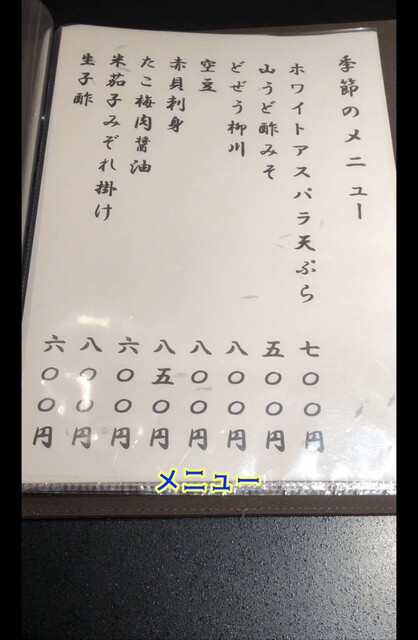 季節のメニュー
ホワイトアスパラ天ぷら 七〇〇円
山うど酢みそ 五〇〇円
どぜう柳川 八〇〇円
空豆 八〇〇円
赤貝刺身 八五〇円
たこ梅肉醤油 六〇〇円
米茄子みぞれ掛け 八〇〇円
生子酢 六〇〇円
メニュー